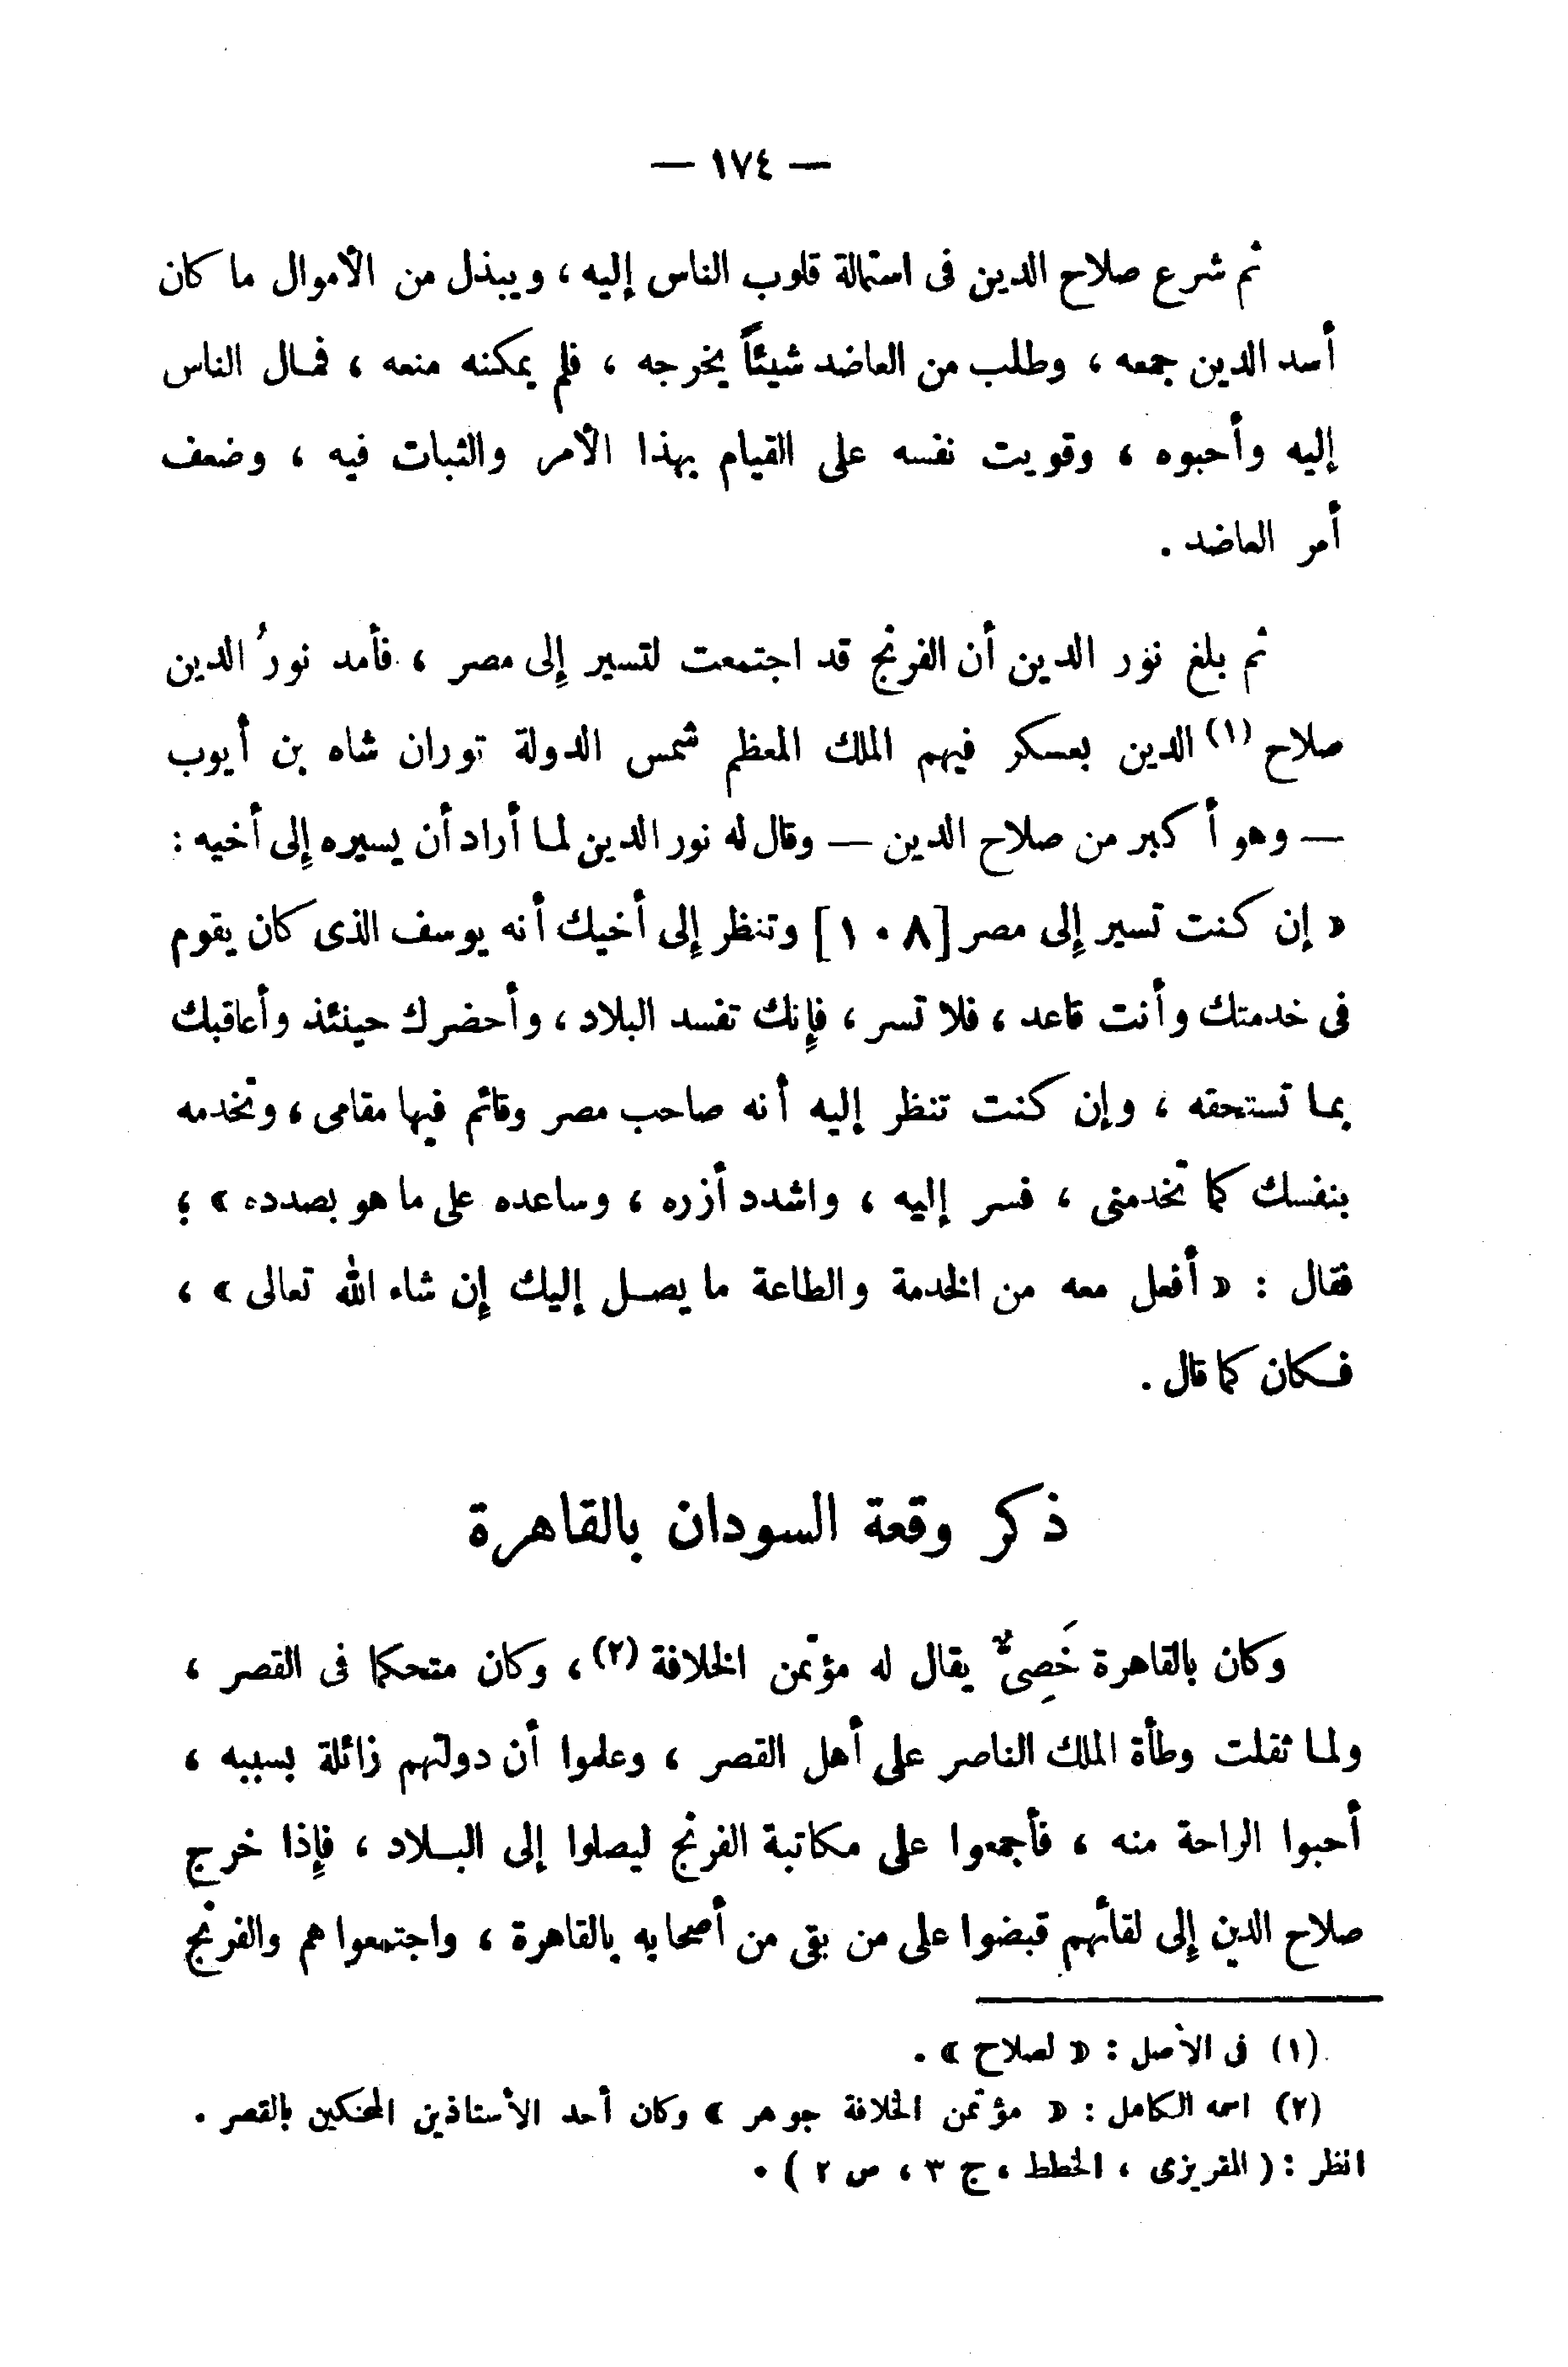 — ١٧٤ —
ثم شرع صلاح الدين فى استمالة قلوب الناس إليه ، ويبذل من الأموال ما كان
أسد الدين جمعه ، وطلب من العاضد شيئاً يخرجه ، فلم يمكنه منعه ، فمال الناس
إليه وأحبوه ، وقويت نفسه على القيام بهذا الأمر والثبات فيه ، وضعف
أمر العاضد .
ثم بلغ نور الدين أن الفرنج قد اجتمعت لتسير إلى مصر ، فأمد نورُ الدين
صلاح (١) الدين بعسكر فيهم الملك المعظم شمس الدولة توران شاه بن أيوب
— وهو أكبر من صلاح الدين — وقال له نور الدين لما أراد أن يسيره إلى أخيه :
« إن كنت تسير إلى مصر [١٠٨] وتنظر إلى أخيك أنه يوسف الذى كان يقوم
فى خدمتك وأنت قاعد ، فلا تسر ، فإنك تفسد البلاد ، وأحضرك حينئذ وأعاقبك
بما تستحقه ، وإن كنت تنظر إليه أنه صاحب مصر وقائم فيها مقامى ، وتخدمه
بنفسك كما تخدمنى ، فسر إليه ، واشدد أزره ، وساعده على ما هو بصدده » ؛
فقال : « أفعل معه من الخدمة والطاعة ما يصل إليك إن شاء الله تعالى » ،
فكان كما قال .
ذكر وقعة السودان بالقاهرة
وكان بالقاهرة خَصِىٌّ يقال له مؤتمن الخلافة (٢) ، وكان متحكما فى القصر ،
ولما ثقلت وطأة الملك الناصر على أهل القصر ، وعلموا أن دولتهم زائلة بسببه ،
أحبوا الراحة منه ، فأجمعوا على مكاتبة الفرنج ليصلوا إلى البلاد ، فإذا خرج
صلاح الدين إلى لقائهم قبضوا على من بقى من أصحابه بالقاهرة ، واجتمعوا هم والفرنج
(١) فى الأصل : « لصلاح » .
(٢) اسمه الكامل : « مؤتمن الخلافة جوهر » وكان أحد الأستاذين المحنكين بالقصر .
انظر : ( المقريزى ، الخطط ، ج ٣ ، ص ٢ ) .